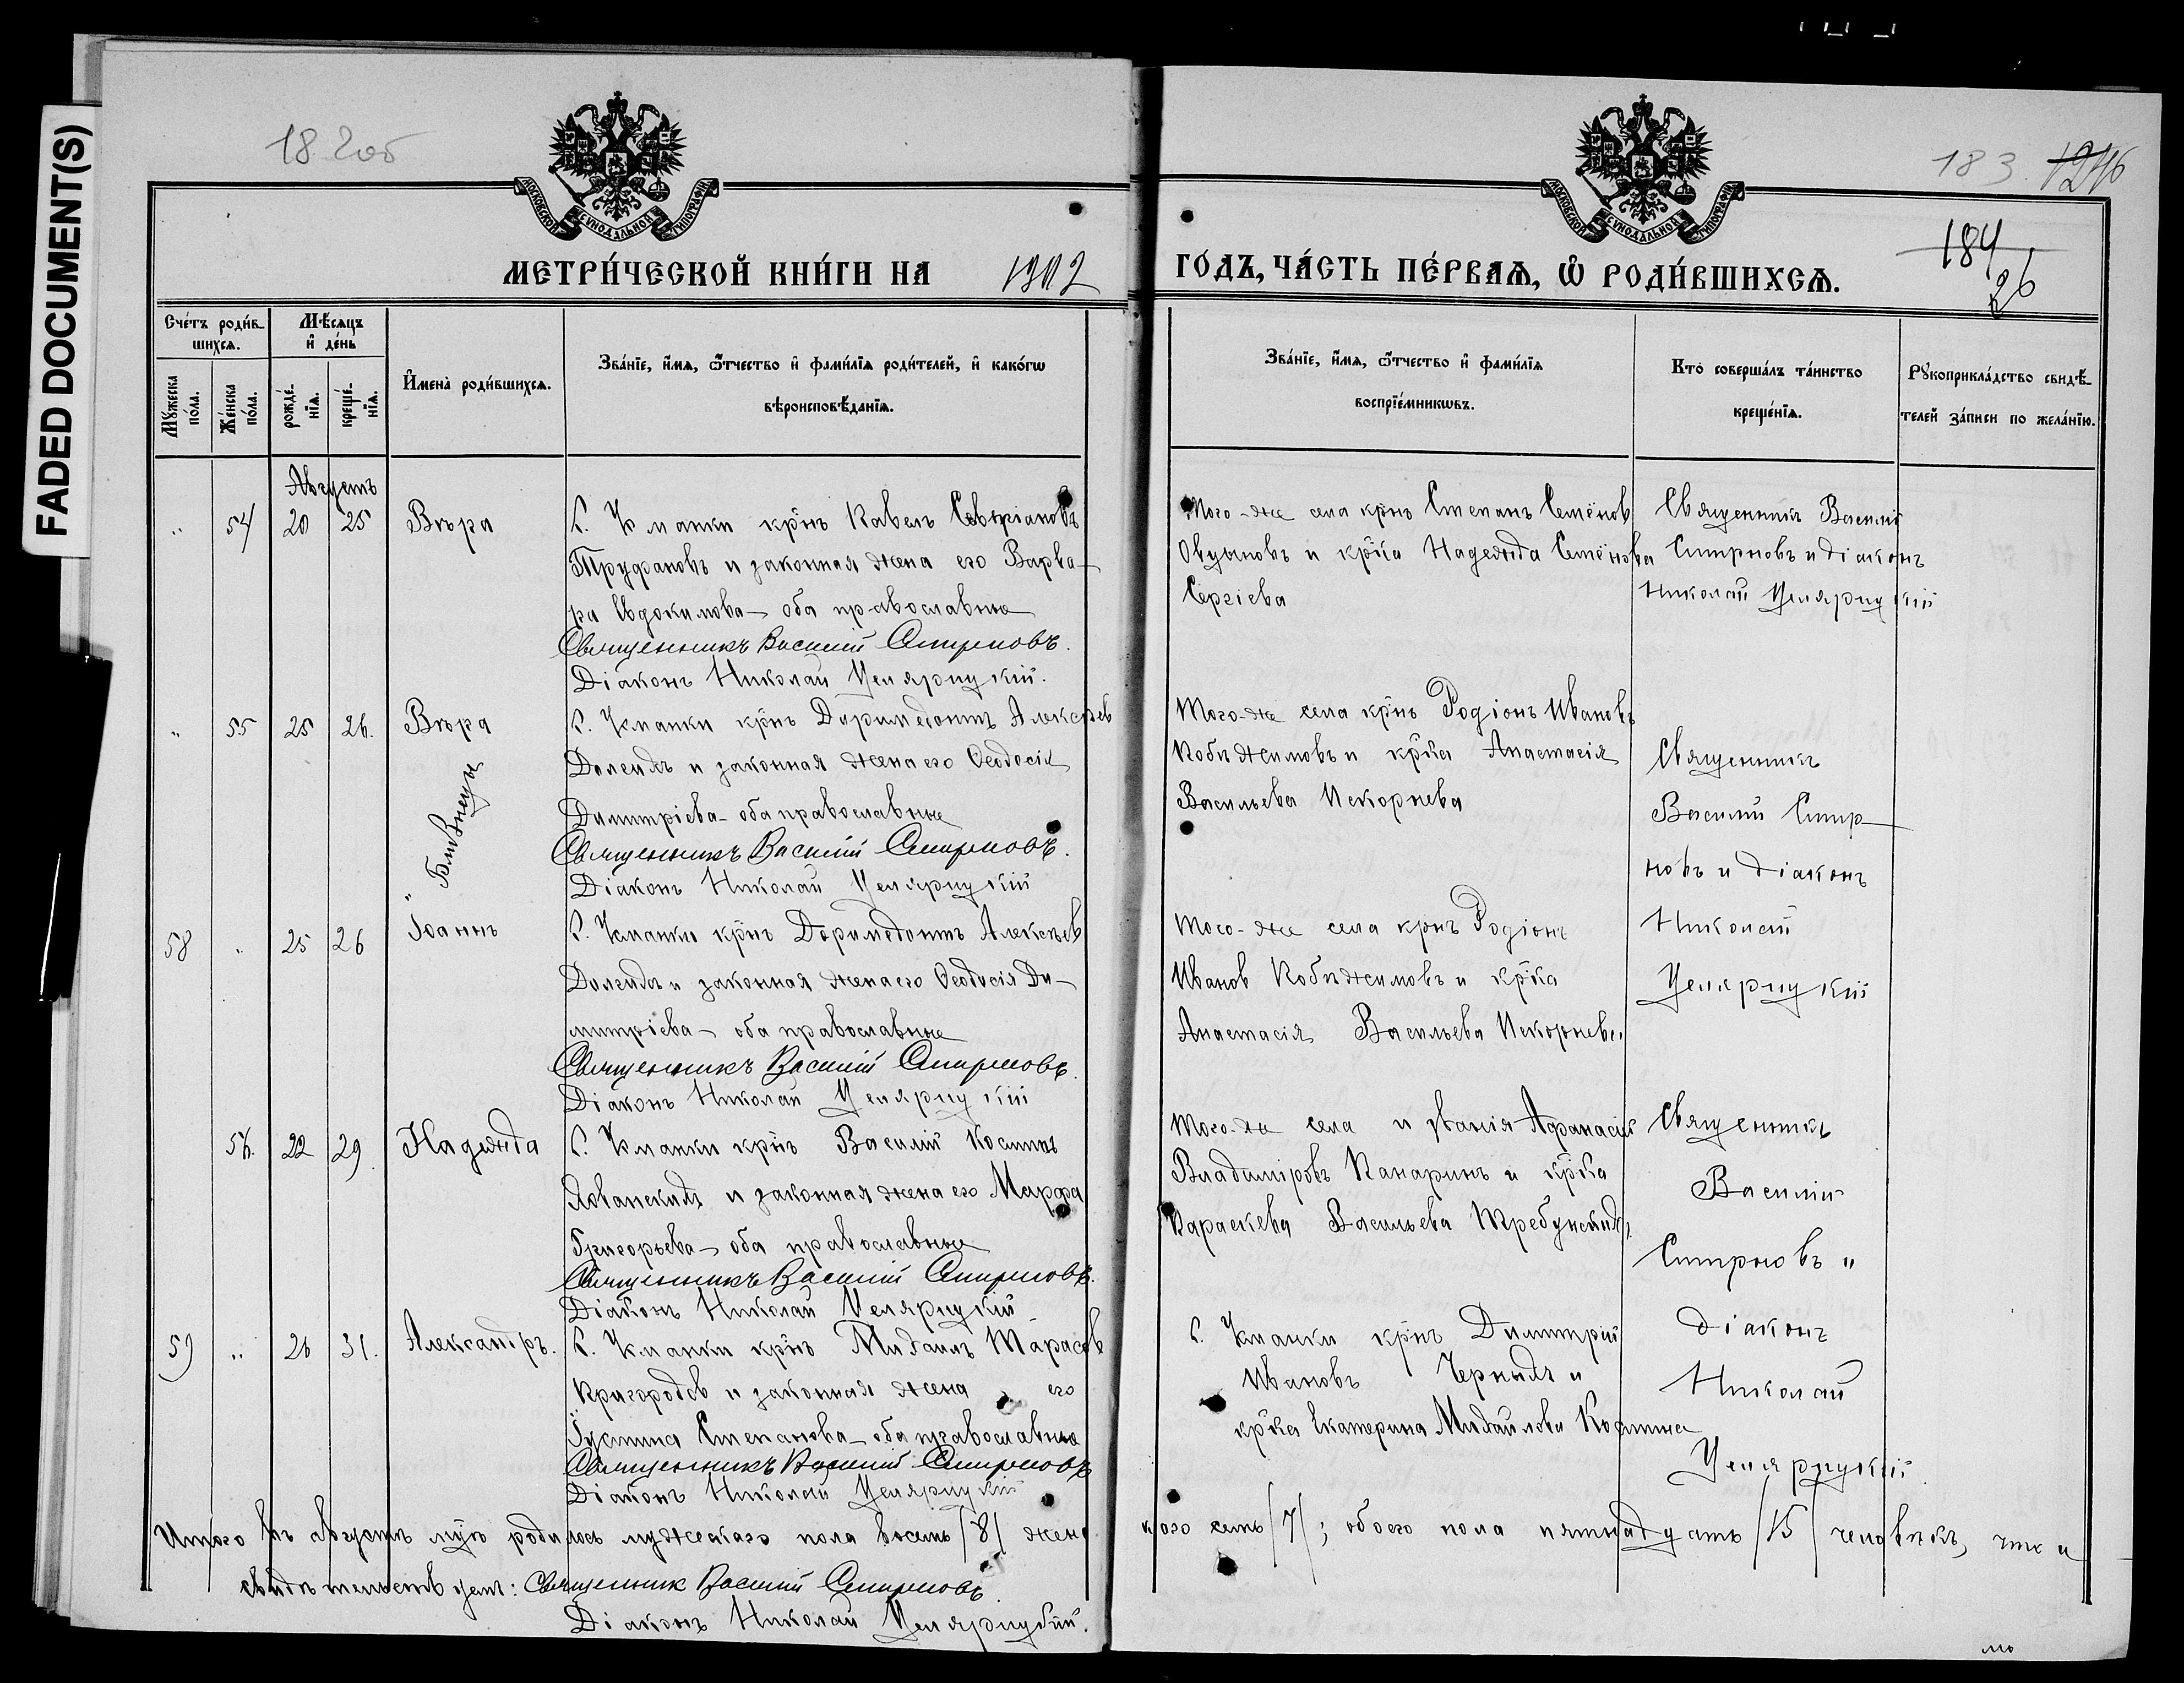 FADED DOCUMENT(S)
18 2об
183. 1246
184
26
МОСКОВСКОЙ СѴНОДАЛЬНОЙ ТИПОГРАФІИ
МОСКОВСКОЙ СѴНОДАЛЬНОЙ ТИПОГРАФІИ
МЕТРИ́ЧЕСКОЙ КНИ́ГИ НА 1902
ГО́ДЪ, ЧА́СТЬ ПЕ́РВАѦ, Ѡ҆ РОДИ́ВШИХСѦ.
Сче́тъ роди́в-
шихсѧ.
Мѣ́сѧцъ
и҆ де́нь
Мꙋ́жеска
по́ла.
Же́нска
по́ла.
рожде́-
нїѧ.
креще́-
нїѧ.
И҆мена̀ роди́вшихсѧ.
Зва́нїе, и҆́мѧ, ѻ҆́тчество и҆ фами́лїѧ роди́телей, и҆ како́гѡ
вѣроисповѣ́данїѧ.
Зва́нїе, и҆́мѧ, ѻ҆́тчество и҆ фами́лїѧ
воспрїе́мникѡвъ.
Кто̀ соверша́лъ та́инство
креще́нїѧ.
Рꙋкоприкла́дство свидѣ́-
телей за́писи по жела́нїю.
Августъ
" 54 20 25 Вѣра
С. Усманки кр̃нъ Павелъ Севѣріановъ
Труфановъ и законная жена его Варва-
ра Евдокимова - оба православные
Священникъ Василій Смирновъ.
Діаконъ Николай
Того-же села кр̃нъ Стефанъ Семёнов
Овцыновъ и кр̃ка Надежда Семёнова
Сергіева
Священникъ Василій
Смирновъ и діаконъ
Николай
" 55 25 26. Вѣра
С. Усманки кр̃нъ Доримедонтъ Алексѣев
Долгихъ и законная жена его Ѳеодосія
Димитріева - оба православные
Священникъ Василій Смирновъ.
Діаконъ Николай
Близнецы
Того-же села кр̃нъ Родіонъ Ивановъ
Кобяжиковъ и кр̃ка Анастасія
Васильева
Священникъ
Василій Смир-
новъ и діаконъ
Николай
58 " 25 26 Іоаннъ
С. Усманки кр̃нъ Доримедонтъ Алексѣев
Долгихъ и законная жена его Ѳеодосія Ди-
митріева - оба православные
Священникъ Василій Смирновъ.
Діаконъ Николай
Того-же села кр̃нъ Родіонъ
Иванов и кр̃ка
Анастасія Васильева
56. 22 29. Надежда
С. Усманки кр̃нъ Василій Косминъ
и законная жена его Марфа
Григорьева - оба православные
Священникъ Василій Смирновъ.
Діаконъ Николай
Того-же села и званія Аѳанасій
Владиміровъ Канаринъ и кр̃ка
Параскева Васильева Требунскихъ
Священникъ
Василій
Смирновъ и
діаконъ
Николай
59 " 26 31. Александръ.
С. Усманки кр̃нъ Михаилъ Тарасов
Пригородов и законная жена его
Іустина Стефанова - оба православные
Священникъ Василій Смирновъ
Діаконъ Николай
С. Усманки кр̃нъ Димитрій
Ивановъ Черныхъ и
кр̃ка Екатерина Михайлова Космина
Итого въ августѣ родилось мужескаго пола восемь /8/ женс
кого семь /7/; обоего пола пятнадцать /15/ человѣкъ,
свидѣтельствуемъ: Священник Василій Смирновъ
Діаконъ Николай